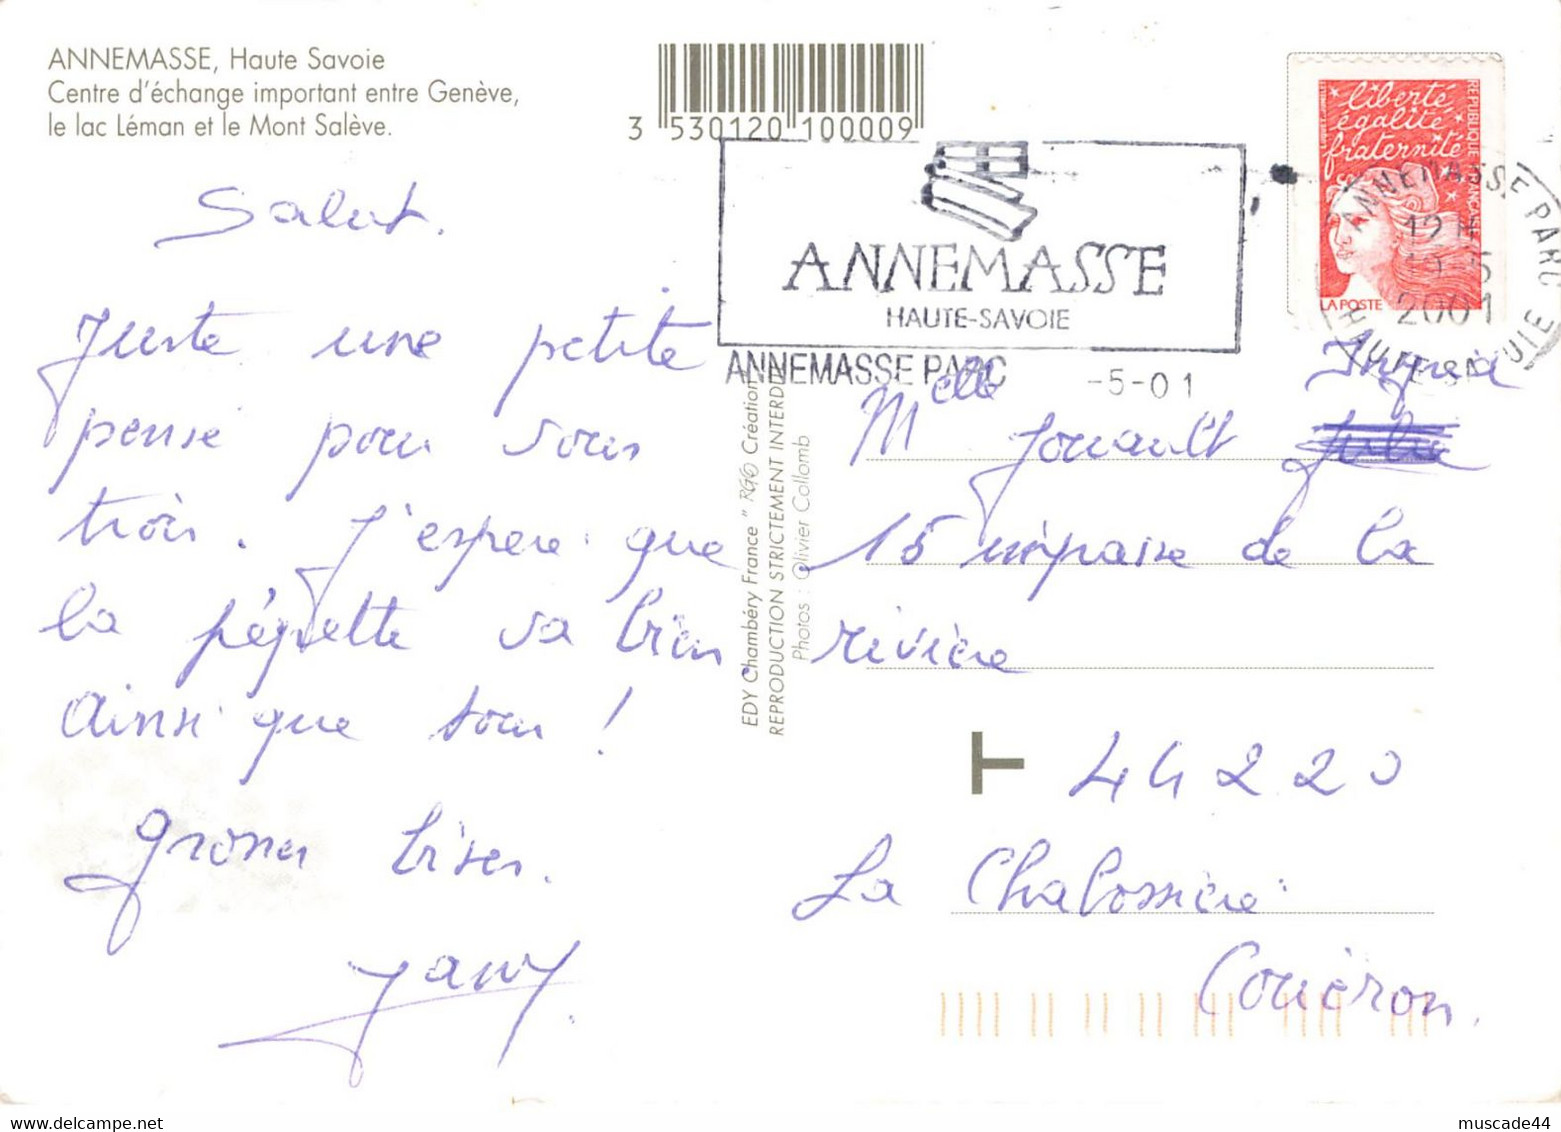 ANNEMASSE, Haute Savoie
Centre d'échange important entre Genève,
le lac Léman et le Mont Salève.
3 530120 100009
liberté
égalité
fraternité
REPUBLIQUE FRANÇAISE
LA POSTE
ANNEMASSE PARC
12 H
19-5
2001
HAUTE-SAVOIE
ANNEMASSE
HAUTE-SAVOIE
ANNEMASSE PARC -5-01
Salut.
Juste une petite
pensé pour vous
trois. J'espère que
la péquette va bien
ainsi que tous !
grosses bises.
EDY Chambéry France " RGO Création
REPRODUCTION STRICTEMENT INTERDITE
Photos : Olivier Collomb
Melle Jouault
15 impasse de la
rivière
T 44220
La Chabossière
Couëron.
muscade44